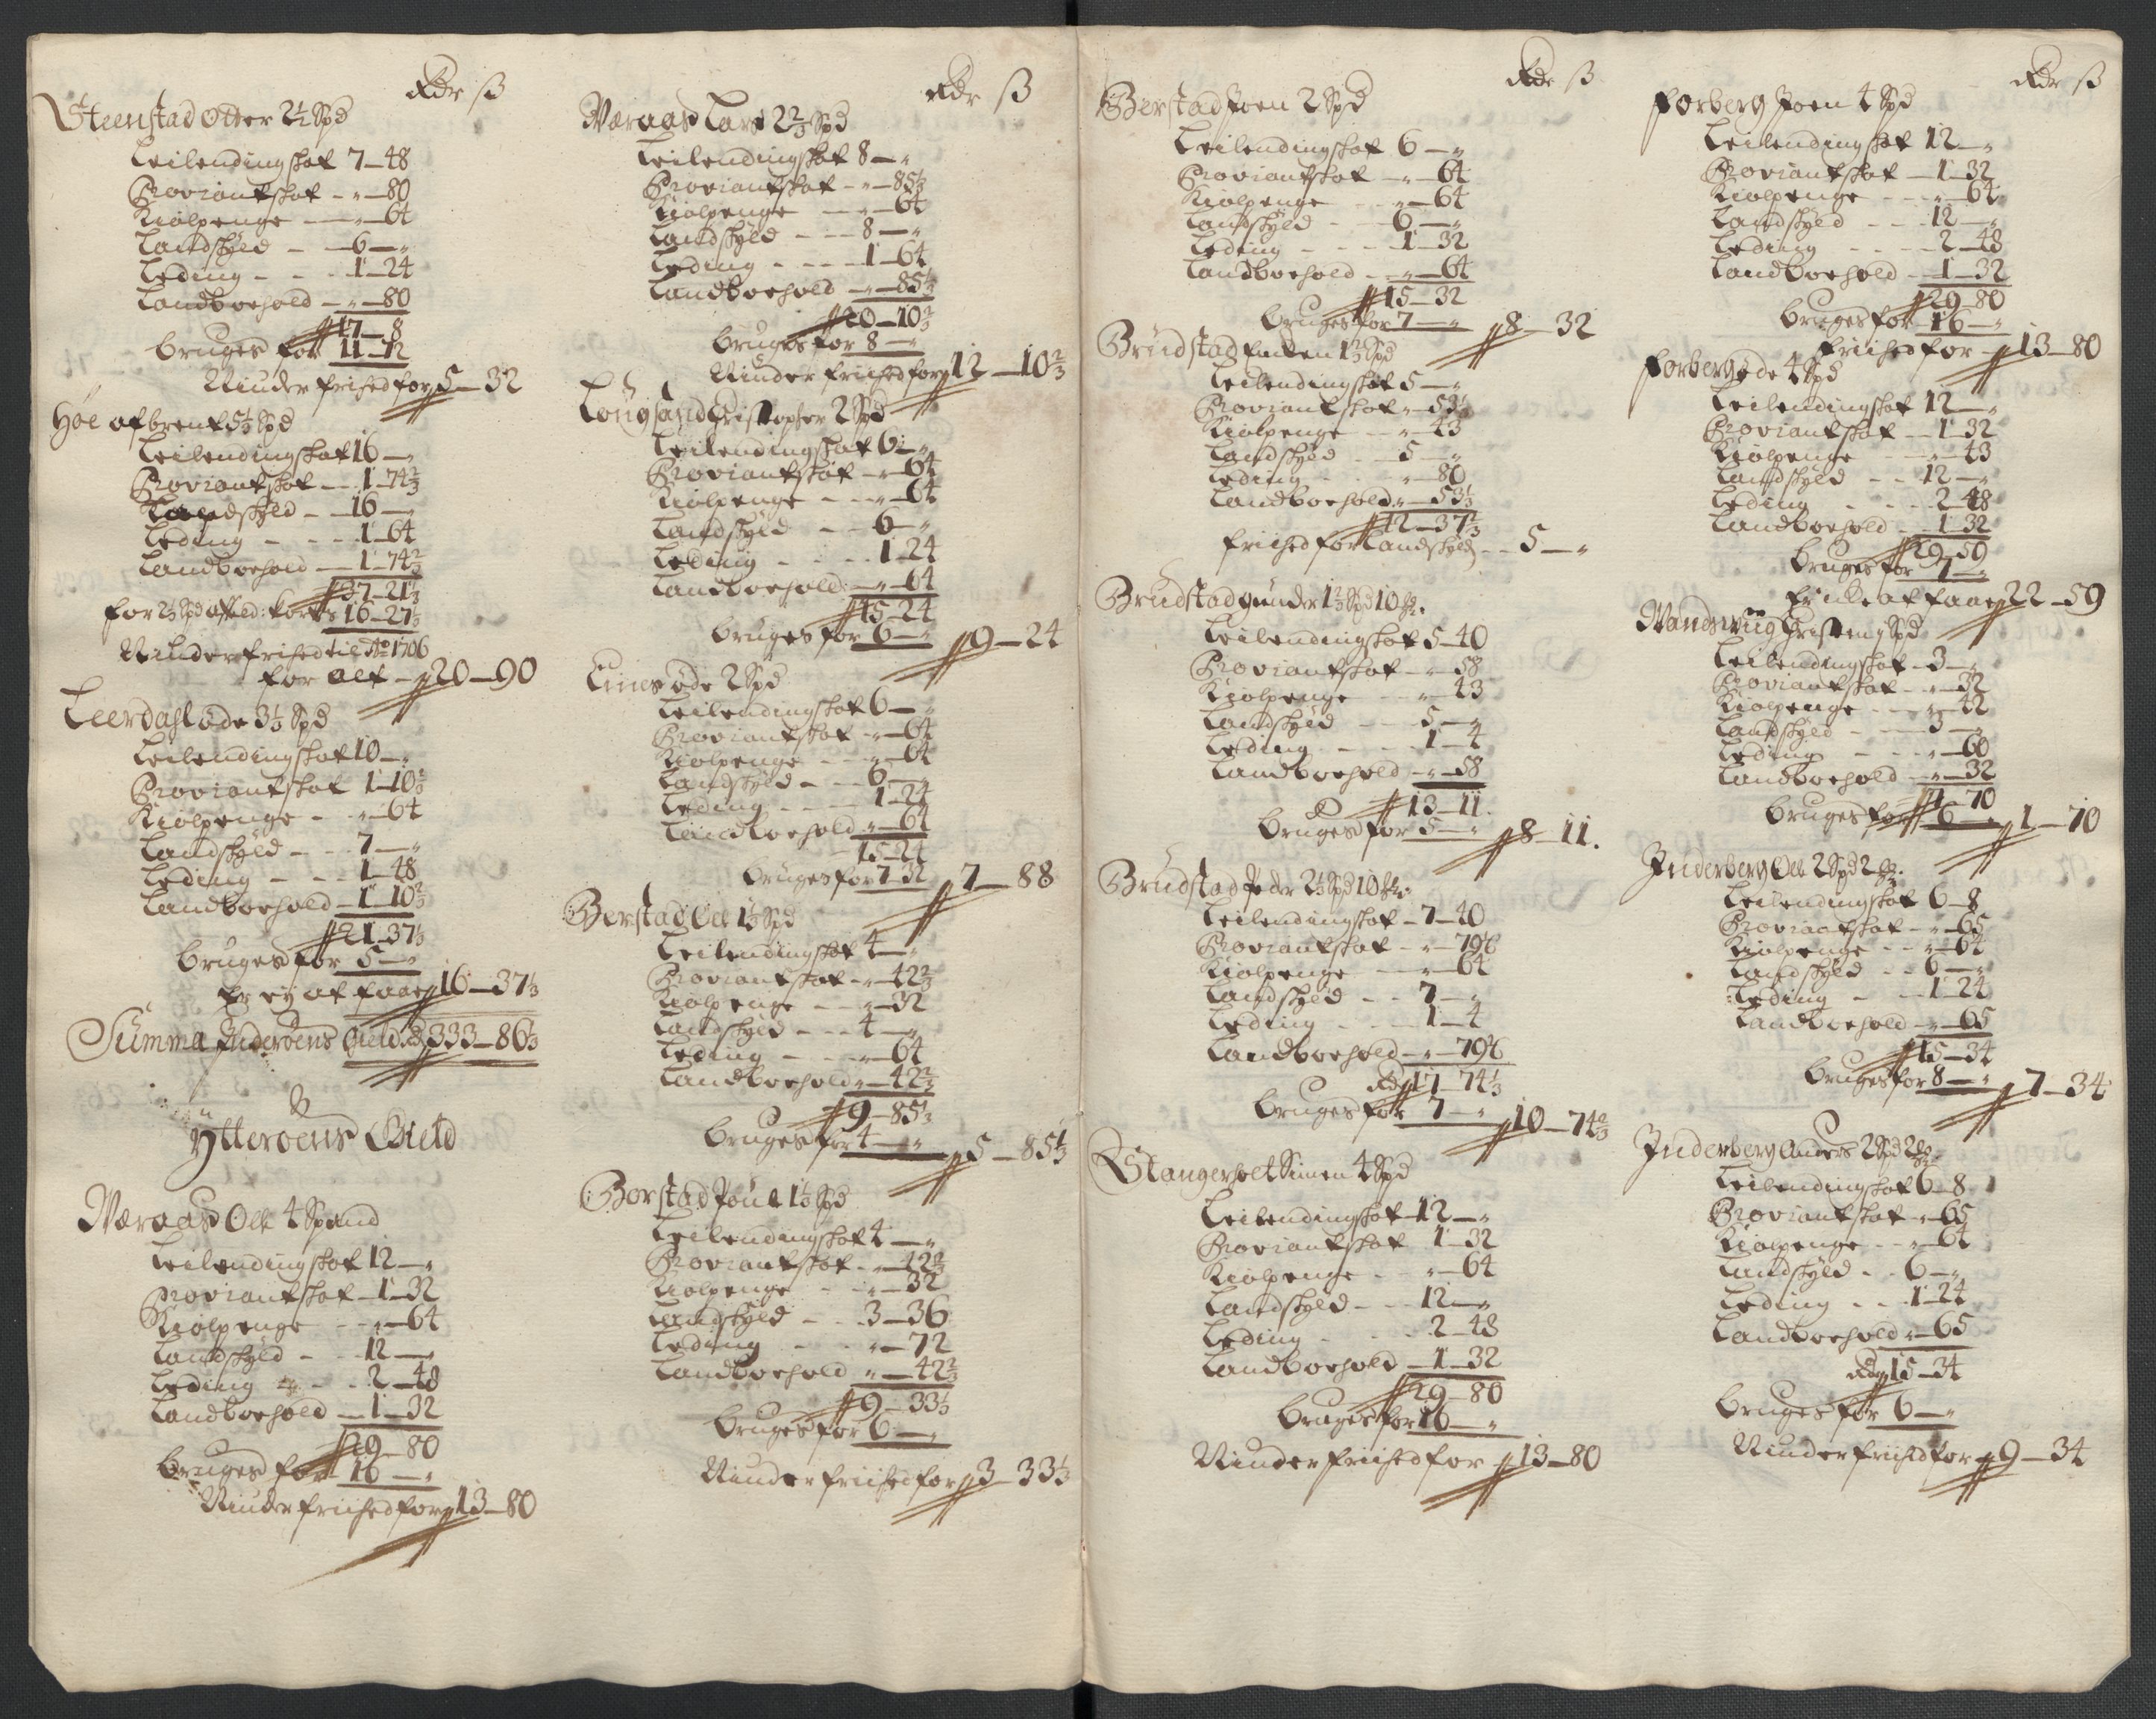 Rdr ß
Steenstad Otter 2½ Spd
Leilendingskat 7–48
Proviantskat – „–80
Kiolpenge – „–64
Landskyld – 6–„
Leding – – 1–24
Landboehold – „–80
17–8
bruges for 11–72
Niuder frihed for 5–32
Høe afbrent 5⅓ Spd
Leilendingskat 16–„
Proviantskat – 1–74⅔
Landskyld – 16–„
Leding – – 1–64
Landboehold – 1–74⅔
37–21⅓
for 2⅓ Spd affeld: kortes 16–27⅓
Niuder frihed til Ao 1706
for alt – 20–90
Leerdahl øde 3⅓ Spd
Leilendingskat 10–„
Proviantskat 1–10⅔
Kiolpenge – „–64
Landskyld – – 7–„
Leding – – 1–48
Landboehold – 1–10⅔
21–37⅓
bruges for 5–„
Er ey at faae 16–37⅓
Summa Inderøens Gield 333–86⅓
Ytterøens Gield
Væraas Ole 4 Spand
Leilendingskat 12–„
Proviantskat – 1–32
Kiolpenge – „–64
Landskyld – 12–„
Leding – – 2–48
Landboehold – 1–32
29–80
bruges for 16–„
Niuder friihed for 13–80
Rdr ß
Væraas Lars 2⅔ Spd
Leilendingskat 8–„
Proviantskat – „–85⅓
Kiolpenge – „–64
Landskyld – – 8–„
Leding – – – 1–64
Landboehold – „–85⅓
20–10⅔
bruges for 8–„
Niuder friihed for 12–10⅔
Lougsand Cristopher 2 Spd
Leilendingskat 6–„
Proviantskat – „–64
Kiolpenge – – „–64
Landskyld – – 6–„
Leding – – 1–24
Landboehold – „–64
15–24
bruges for 6–„ 9–24
Lines øde 2 Spd
Leilendingskat 6–„
Proviantskat – „–64
Kiolpenge – – „–64
Landskyld – – 6–„
Leding – – – 1–24
Landboehold „–64
15–24
bruges for 7–32 7–88
Berstad Ole 1⅓ Spd
Leilendingskat 4–„
Proviantskat – „–42⅔
Kiolpenge – – „–32
Landskyld – – 4–„
Leding – – „–64
Landboehold „–42⅔
9–85⅓
bruges for 4–„ 5–85⅓
Borstad Jon 1⅓ Spd
Leilendingskat 4–„
Proviantskat – „–42⅔
Kiolpenge – – „–32
Landskyld – – 3–36
Leding – – „–72
Landboehold „–42⅔
9–33⅓
bruges for 6–„
Niuder friihed for 3–33⅓
Rdr ß
Berstad Joen 2 Spd
Leilendingskat 6–„
Proviantskat – „–64
Kiolpenge – – „–64
Landskyld – – 6–„
Leding – – – 1–32
Landboehold – „–64
15–32
bruges for 7–„ 8–32
Brudstad Enken 1⅔ Spd
Leilendingskat 5–„
Proviantskat „–53⅓
Kiolpenge – – „–43
Landskyld – 5–„
Leding – – „–80
Landboehold „–53⅓
12–37⅔
friihed for Landskyld – – 5–„
Brudstad gunder 1⅔ Spd 10
Leilendingskat 5–40
Proviantskat – „–58
Kiolpenge – – „–43
Landskyld – – 5–„
Leding – – – 1–4
Landboehold – „–58
13–11.
bruges for 5–„ 8–11.
Brudstad Peder 2⅓ Spd 10
Leilendingskat – 7–40
Proviantskat – „–79⅙
Kiolpenge – „–64
Landskyld – – 7–„
Leding – – – 1–4
Landboehold – „–79⅙
Rdr 17–74⅓
bruges for 7–„ 10–74⅔
Stangerholt Simen 4 Spd
Leilendingskat – 12–„
Proviantskat 1–32
Kiolpenge – „–64
Landskyld – – 12–„
Leding – – – 2–48
Landboehold – 1–32
29–80
bruges for 16–„
Niuder friihed for 13–80
Rdr ß
Forberg Joen 4 Spd
Leilendingskat 12–„
Proviantskat – 1–32
Kiolpenge – – „–64
Landskyld – – 12–„
Leding – – – 2–48
Landboehold – 1–32
29–80
bruges for 16–„
friihed for – 13–80
Forberg øde 4 Spd
Leilendingskat 12–„
Proviantskat – 1–32
Kiolpenge – – „–43
Landskyld – – 12–„
Leding – – – 2–48
Landboehold – 1–32
29–59
bruges for 7–„
Er icke at faae 22–59
Wandswiig Cristen 1 Spd
Leilendingskat – 3–„
Proviantskat – „–32
Kiolpenge – – „–42
Landskyld – – 3–„
Leding – – – „–60
Landboehold – „–32
7–70
bruges for 6–„ 1–70
Inderberg Ole 2 Spd 2
Leilendingskat 6–8
Proviantskat – „–65
Kiolpenge – – „–64
Landskyld – – 6–„
Leding – – 1–24
Landboehold – „–65
15–34
bruges for 8–„ 7–34
Inderberg Anders 2 Spd 2
Leilendingskat 6–8
Proviantskat – „–65
Kiolpenge – – „–64
Landskyld – – 6–„
Leding – – 1–24
Landboehold „–65
Rdr 15–34
bruges for 6–„
Niuder friihed for 9–34